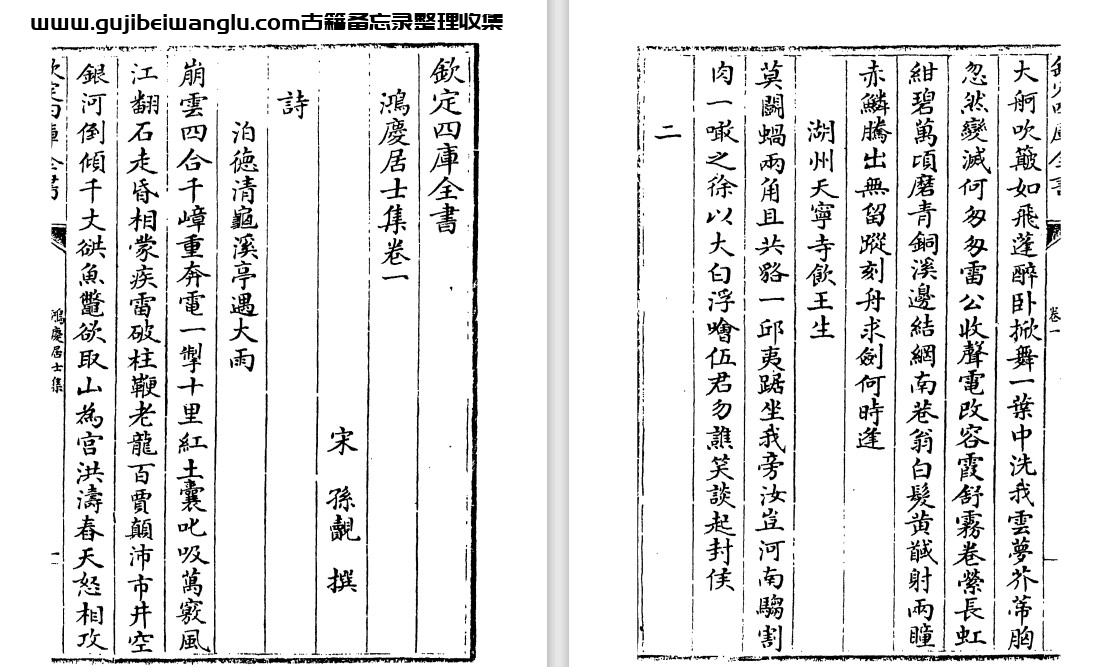 www.gujibeiwanglu.com古籍备忘录整理收集
欽定四庫全書
鴻慶居士集卷一
宋 孫覿 撰
詩
泊德清龜溪亭遇大雨
崩雲四合千嶂重奔電一掣十里紅土囊叱吸萬竅風
江翻石走昏相蒙疾雷破柱鞭老龍百賈顛沛市井空
銀河倒傾千丈谼魚鼈欲取山為宮洪濤舂天怒相攻
鴻慶居士集
卷一
大舸吹簸如飛蓬醉卧掀舞一葉中洗我雲夢芥蔕胸
忽然變滅何匆匆雷公收聲電改容霞舒霧卷縈長虹
紺碧萬頃磨青銅溪邊結網南巷翁白髮黄馘射兩瞳
赤鱗騰出無留蹤刻舟求劍何時逢
湖州天寧寺飲王生
莫鬬蝸兩角且共貉一邱夷踞坐我旁汝豈河南騶割
肉一噉之徐以大白浮噲伍君勿譙笑談起封侯
二